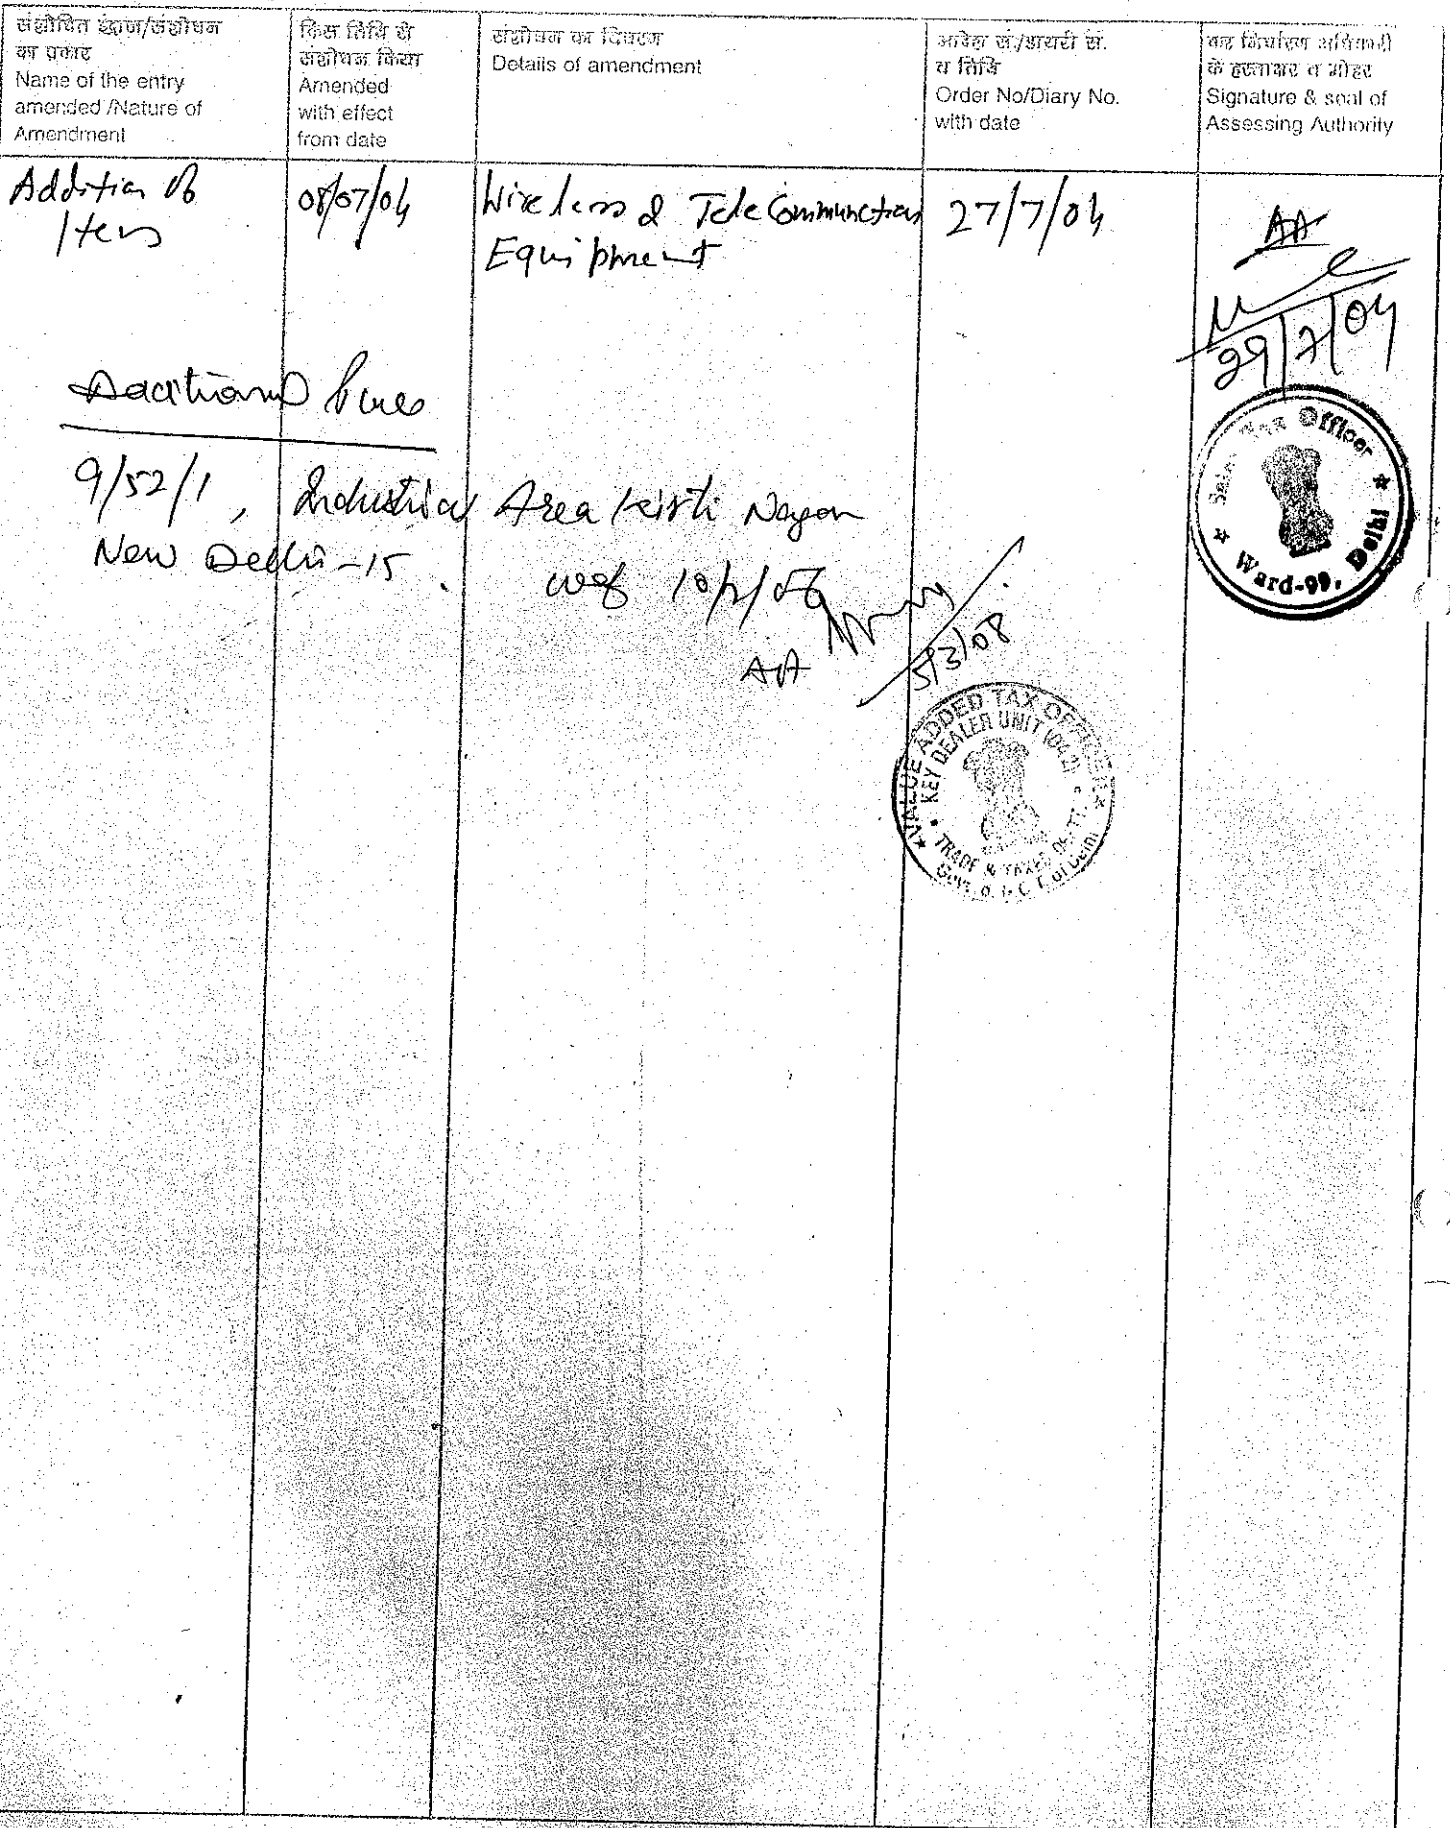 संशोधित इंद्राज/संशोधन
का प्रकार
Name of the entry
amended /Nature of
Amendment
किस तिथि से
संशोधन किया
Amended
with effect
from date
संशोधन का विवरण
Details of amendment
आदेश सं./डायरी सं.
व तिथि
Order No/Diary No.
with date
कर निर्धारण अधिकारी
के हस्ताक्षर व मोहर
Signature & seal of
Assessing Authority
Addition of
Items
08/07/04
Wireless & Tele Communction
Equipment
27/7/04
AA
29/7/04
Sales Tax Officer
Ward-99, Delhi
Additional
9/52/1, Industrial Area Kirti Nagar
New Delhi-15.
wef
AA
5/3/08
VALUE ADDED TAX OFFICER
KEY DEALER UNIT (042)
TRADE & TAXES DEPTT.
Govt. of N.C.T. of Delhi